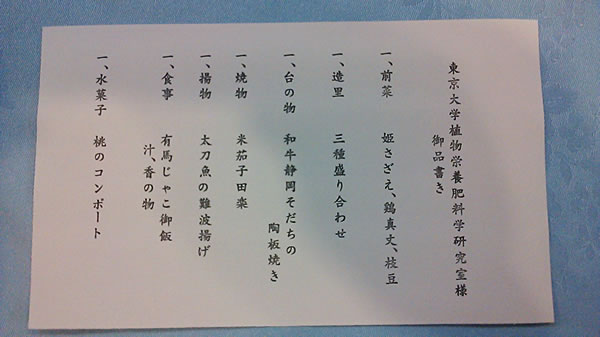 東京大学植物栄養肥料学研究室様
御品書き
一、前菜 姫さざえ、鶏真丈、枝豆
一、造里 三種盛り合わせ
一、台の物 和牛静岡そだちの
陶板焼き
一、焼物 米茄子田楽
一、揚物 太刀魚の難波揚げ
一、食事 有馬じゃこ御飯
汁、香の物
一、水菓子 桃のコンポート